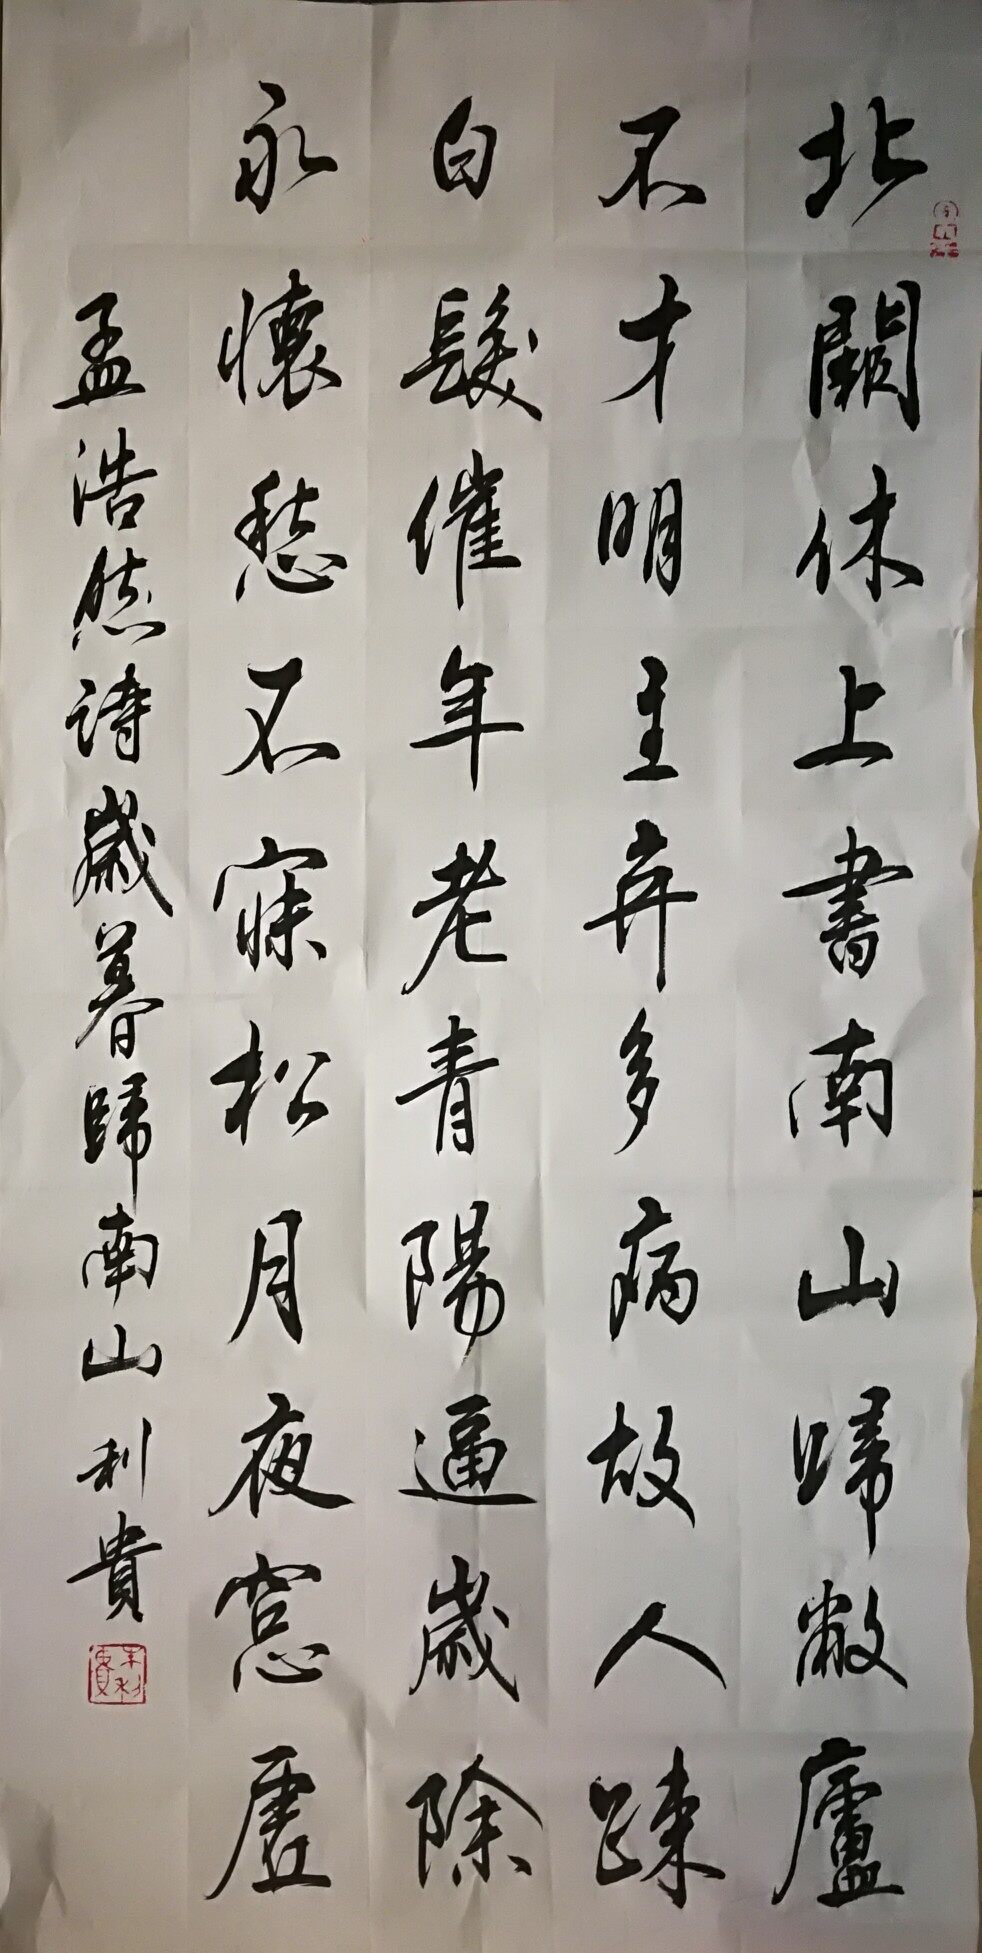 北闕休上書南山歸敝廬
不才明主弃多病故人踈
白髮催年老青陽逼歲除
永懷愁不寐松月夜窓虛
孟浩然詩歲暮歸南山利貴